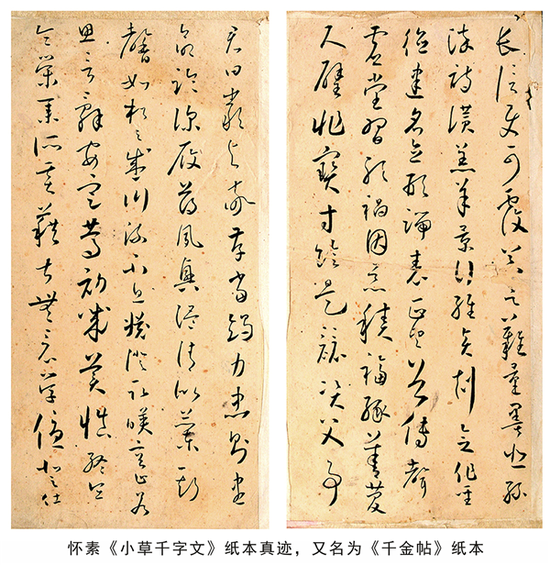 長信使可覆器欲難量墨悲絲
染詩讚羔羊景行維賢剋念作聖
德建名立形端表正空谷傳聲
虛堂習聽禍因惡積福緣善慶
尺璧非寶寸陰是競資父事
君曰嚴與敬孝當竭力忠則盡
命臨深履薄夙興溫凊似蘭斯
馨如松之盛川流不息淵澄取暎容止若
思言辭安定篤初誠美慎終宜
令榮業所基藉甚無竟學優登仕
怀素《小草千字文》纸本真迹，又名为《千金帖》纸本